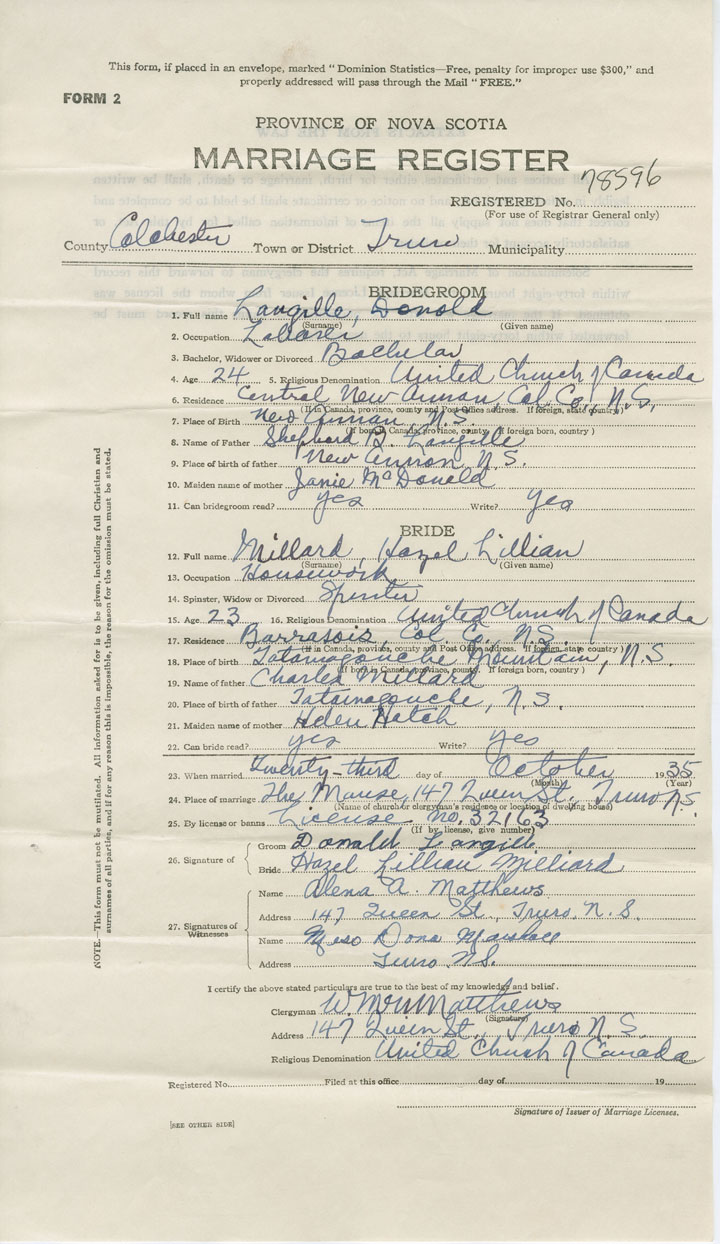 This form, if placed in an envelope, marked "Dominion Statistics—Free, penalty for improper use $300," and
properly addressed will pass through the Mail "FREE."
FORM 2
PROVINCE OF NOVA SCOTIA
MARRIAGE REGISTER
REGISTERED No. 78596
(For use of Registrar General only)
County Colchester Town or District Truro Municipality
BRIDEGROOM
1. Full name Langille, Donold
(Surname) (Given name)
2. Occupation Laborer
3. Bachelor, Widower or Divorced Bachelor
4. Age 24 5. Religious Denomination United Church of Canada
6. Residence Central New Annan, Col. Co., N.S.
(If in Canada, province, county and Post Office address. If foreign, state country)
7. Place of Birth New Annan, N.S.
(If born in Canada, province, county. If foreign born, country)
8. Name of Father Shepherd Langille
9. Place of birth of father New Annon, N.S.
10. Maiden name of mother Janie McDonald
11. Can bridegroom read? yes Write? yes
BRIDE
12. Full name Millard, Hazel Lillian
(Surname) (Given name)
13. Occupation Housework
14. Spinster, Widow or Divorced Spinster
15. Age 23 16. Religious Denomination United Church of Canada
17. Residence Barrasois, Col. Co., N.S.
(If in Canada, province, county and Post Office address. If foreign, state country)
18. Place of birth Tatamagouche Mountain, N.S.
(If born in Canada, province, county. If foreign born, country)
19. Name of father Charles Millard
20. Place of birth of father Tatamagouche, N.S.
21. Maiden name of mother Helen Hatch
22. Can bride read? yes Write? yes
23. When married twenty-third day of October 1935
(Month) (Year)
24. Place of marriage The Manse, 147 Queen St., Truro N.S.
(Name of church or clergyman's residence or location of dwelling house)
25. By license or banns License no. 32163
(If by license, give number)
26. Signature of Groom Donald Langille
Bride Hazel Lillian Milliard
27. Signatures of Witnesses Name Alena A. Matthews
Address 147 Queen St., Truro, N.S.
Name Miss Dona
Address Truro N.S.
I certify the above stated particulars are true to the best of my knowledge and belief.
Clergyman Matthews
(Signature)
Address 147 Queen St., Truro N.S.
Religious Denomination United Church of Canada
Registered No. Filed at this office day of 19
Signature of Issuer of Marriage Licenses.
[SEE OTHER SIDE]
NOTE.—This form must not be mutilated. All information asked for is to be given, including full Christian and
surnames of all parties, and if for any reason this is impossible, the reason for the omission must be stated.